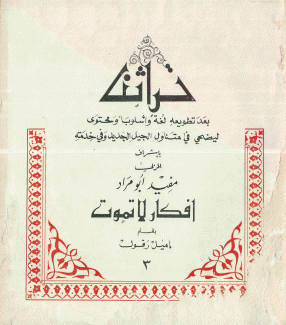 تراثنا
بعد تطويعه لغة وأسلوبا ومحتوى
ليضحي في متناول الجيل الجديد وفي خدمته
بإشراف
مفيد أبو مراد
افكار لا تموت
بقلم
إميل رفول
٣